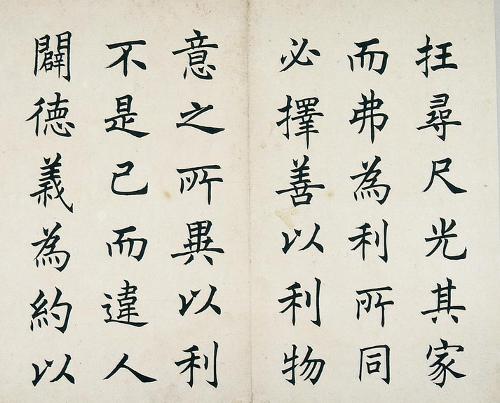 抂尋尺光其家
而弗為利所同
必擇善以利物
意之所異以利
不是已而違人
闢德義為約以